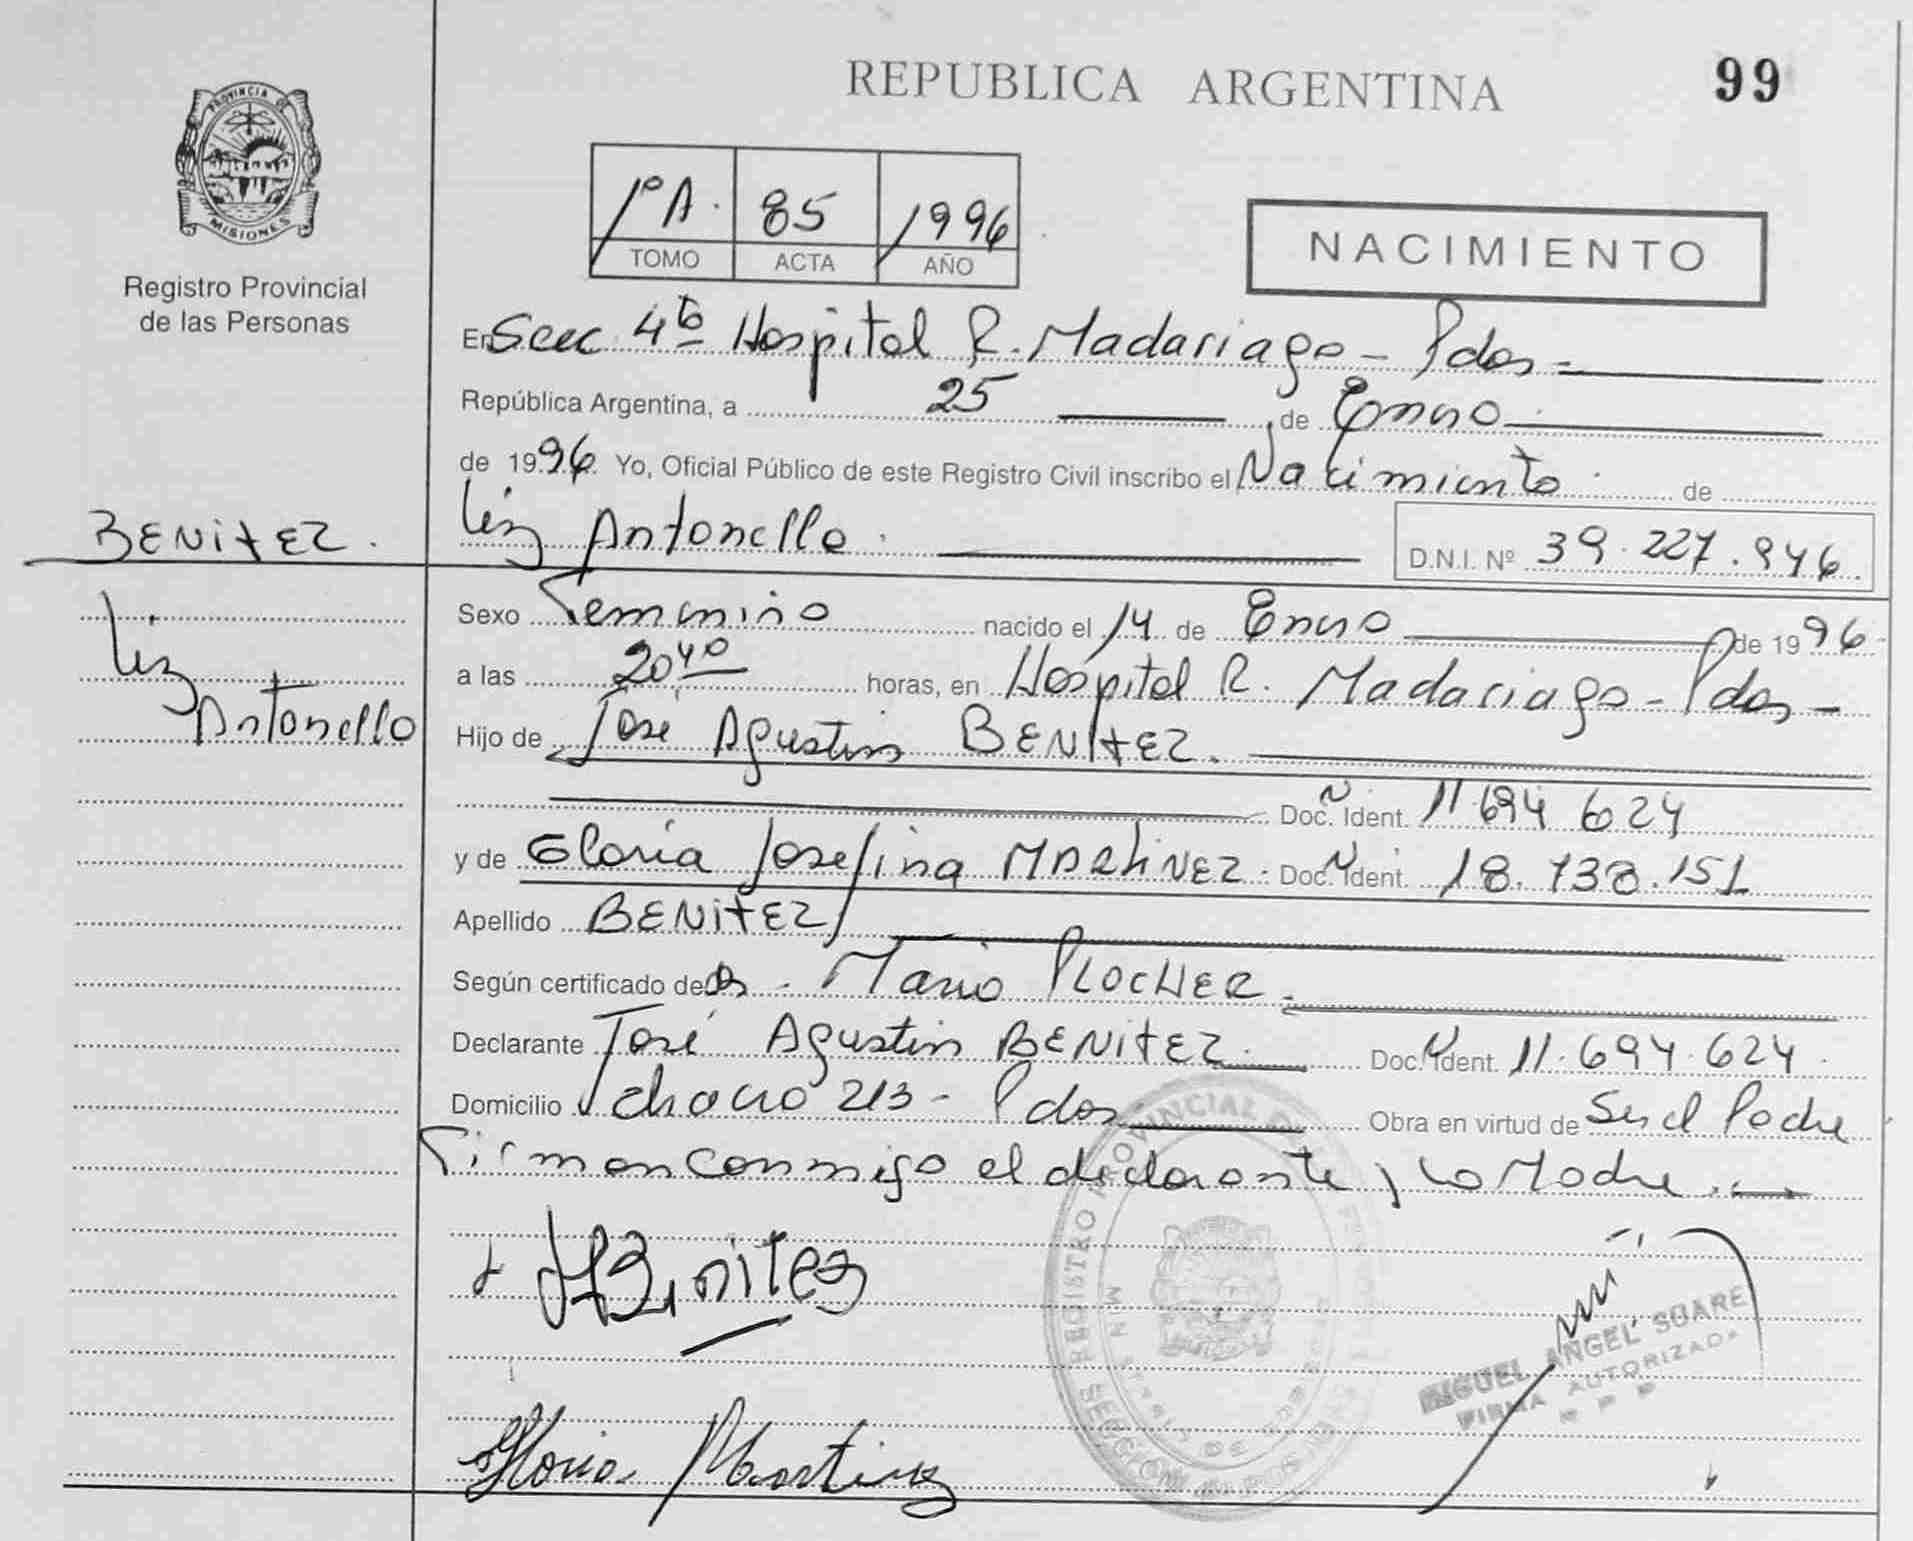 PROVINCIA DE
MISIONES
Registro Provincial
de las Personas
BENITEZ.
Liz
Antonella
REPUBLICA ARGENTINA
99
1º A. 85 1996
TOMO ACTA AÑO
NACIMIENTO
En Secc. 4ta Hospital R. Madariaga - Pdas -
República Argentina, a 25 de Enero
de 1996. Yo, Oficial Público de este Registro Civil inscribo el Nacimiento de
Liz Antonella. D.N.I. Nº 39.227.946.
Sexo Femenino nacido el 14 de Enero de 1996
a las 20 40 horas, en Hospital R. Madariaga - Pdas -
Hijo de José Agustin BENITEZ.
Doc. Ident. 11 694 624
y de Gloria Josefina MARTINEZ. Doc. Ident. 18.738.151
Apellido BENITEZ
Según certificado de Dr. Mario PLOCHER
Declarante José Agustin BENITEZ. Doc. Ident. 11.694.624.
Domicilio chacra 213 - Pdas Obra en virtud de Ser el Padre
Firman conmigo el declarante y la Madre.
Benitez
Gloria Martinez
REGISTRO PROVINCIAL DE
SECCION
MIGUEL ANGEL SUARE
FIRMA AUTORIZADA